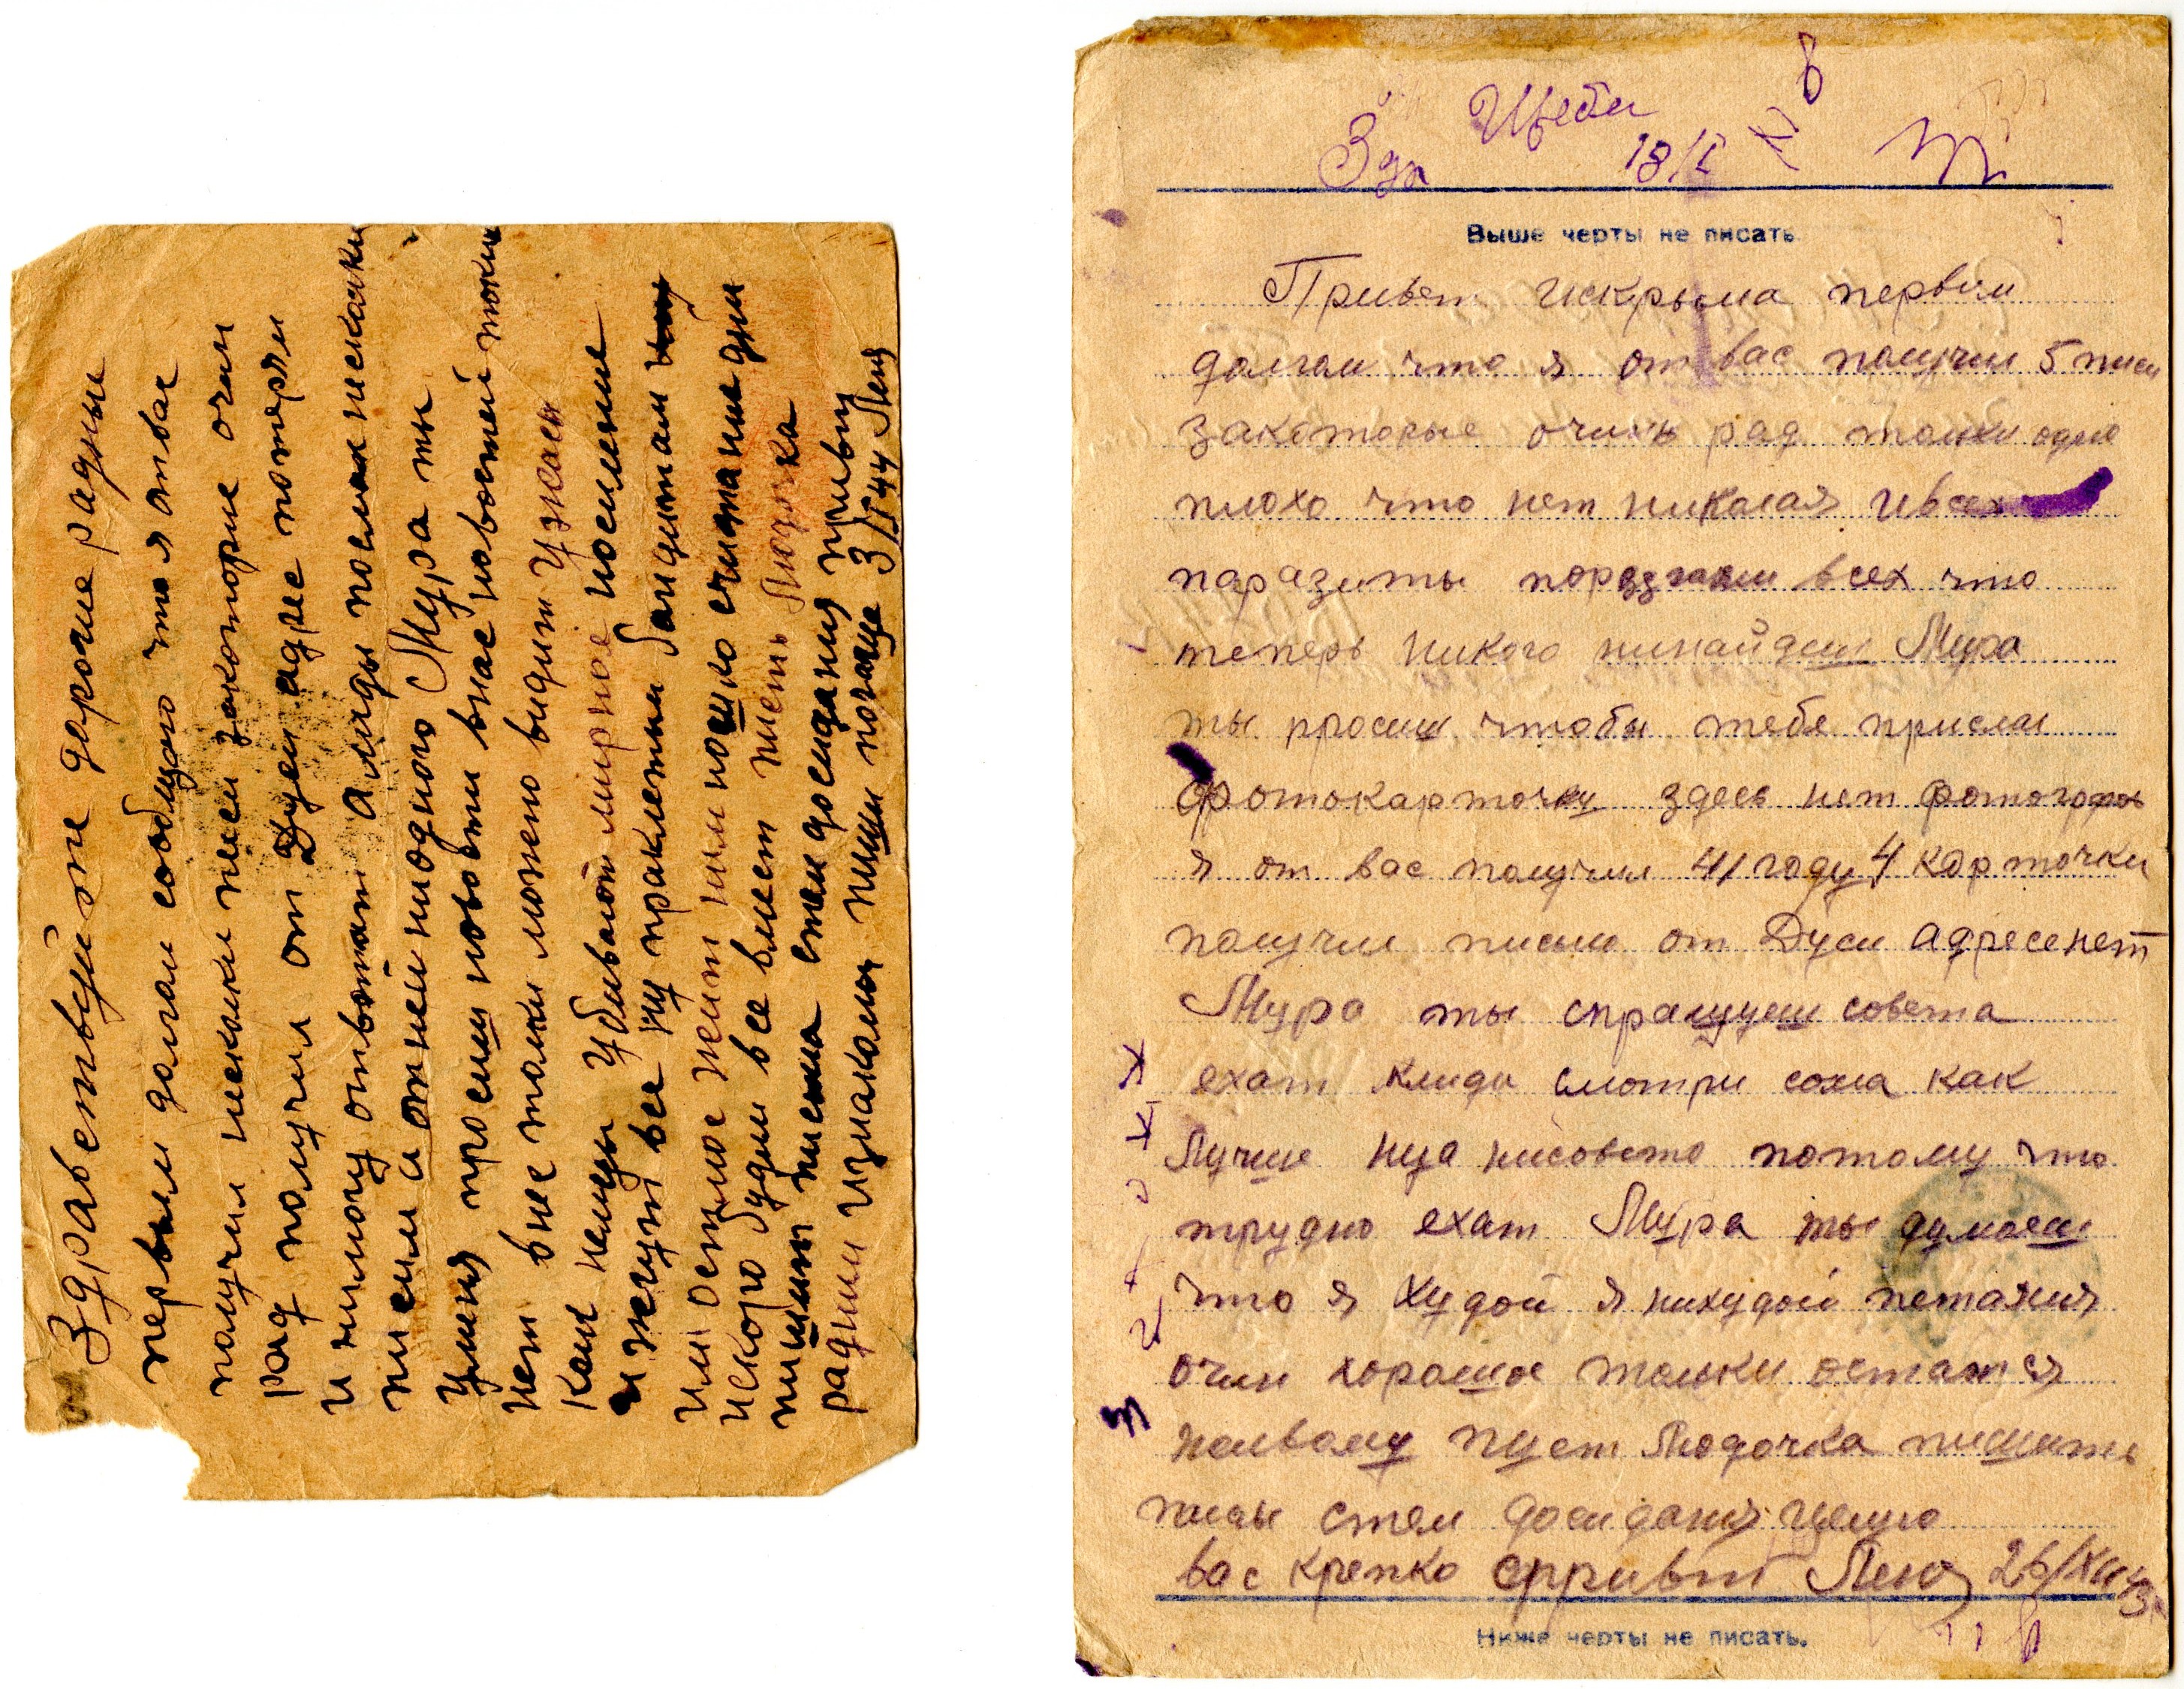 Здравствуйте дарогие радны
первым долгом сообщаю что я отвас
получил несколки писем закоторые очин
рад получил от Дуси адрес потерял
и нимогу ответит а Лиды послал нисколки
писем а отней ниодного Мура ты
уминя просиш новости внас новостей таких
нет вне толки можно видит ужасы
как немцы убивают мирное носиление
и жгут все ну праклетым бандитам
им осталос жит нимношко считаные дни
искоро будим все вмест пиет Людочка
пишит писма стем досидания привет
радным изнакомым пиши почаще 3/I 44 Лёня
Здр
18/I
Выше черты не писать
Привет искрыма первим
долгом что я от вас получил 5 писем
закоторые очинь рад толки одно
плохо что нет николая ивсех
паразиты поразгнали всех что
теперь никого нинайдеш Мура
ты просиш чтобы тебе прислал
фотокарточку здесь нет фотографов
я от вас получил 41 году 4 карточки
получил писмо от Дуси адреса нет
Мура ты спрашуеш совета
ехат клиди смотри сама как
Лучше нуа нисовето потому что
трудно ехат Мура ты думаеш
что я худой я нихудой петания
очин хорошое толки остатся
живому пуст Людочка пишить
писмы стем досидания целую
вас крепко спривет Лёня 26/XII 43
Ниже черты не писать.